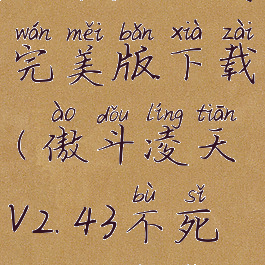 wán měi bǎn xià zǎi
完美版下载
ào dǒu líng tiān
(傲斗凌天
bù sǐ
V2.43不死